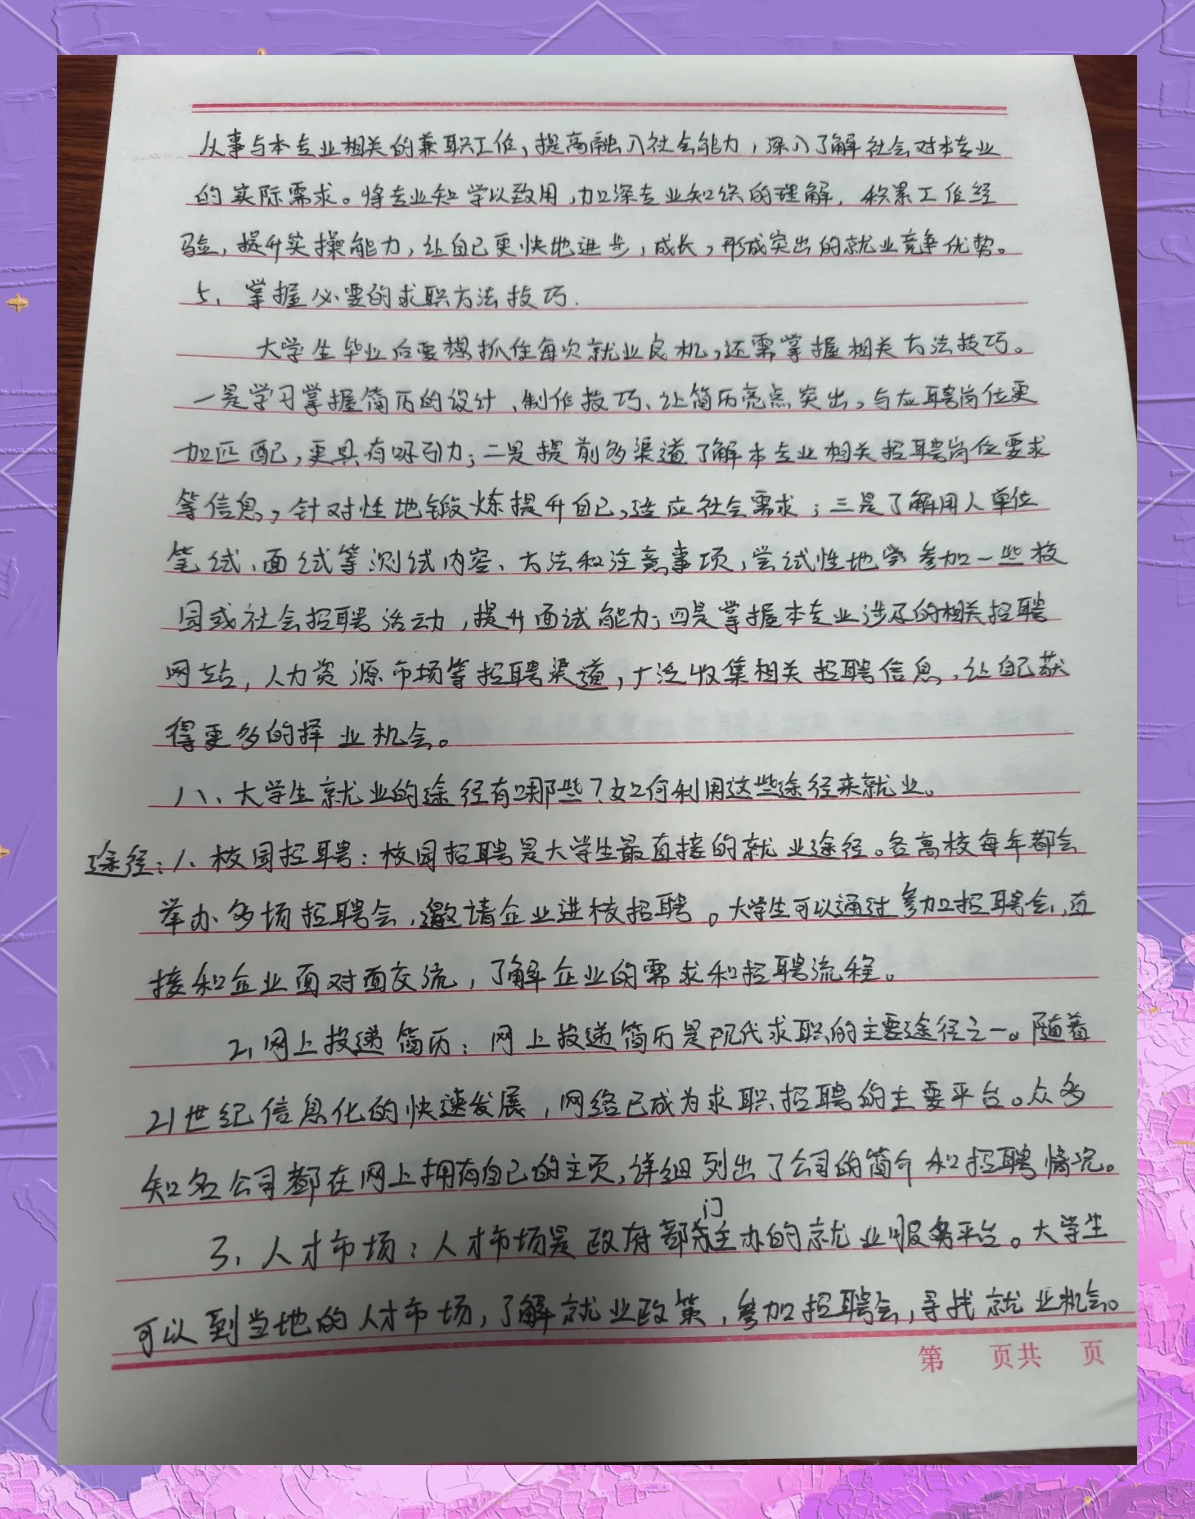 从事与本专业相关的兼职工作,提高融入社会能力,深入了解社会对本专业
的实际需求。将专业知学以致用,加深专业知识的理解,积累工作经
验,提升实操能力,让自己更快地进步,成长,形成突出的就业竞争优势。
5、掌握必要的求职方法技巧.
大学生毕业后要想抓住每次就业良机,还需掌握相关方法技巧。
一是学习掌握简历的设计、制作技巧、让简历亮点突出,与应聘岗位更
加匹配,更具有吸引力;二是提前多渠道了解本专业相关招聘岗位要求
等信息,针对性地锻炼提升自己,适应社会需求;三是了解用人单位
笔试、面试等测试内容、方法和注意事项,尝试性地参加一些校
园或社会招聘活动,提升面试能力;四是掌握本专业涉及的相关招聘
网站,人力资源市场等招聘渠道,广泛收集相关招聘信息,让自己获
得更多的择业机会。
八、大学生就业的途径有哪些?如何利用这些途径来就业。
途径:1、校园招聘:校园招聘是大学生最直接的就业途径。各高校每年都会
举办多场招聘会,邀请企业进校招聘。大学生可以通过参加招聘会,直
接和企业面对面交流,了解企业的需求和招聘流程。
2、网上投递简历:网上投递简历是现代求职的主要途径之一。随着
21世纪信息化的快速发展,网络已成为求职招聘的主要平台。众多
知名公司都在网上拥有自己的主页,详细列出了公司的简介和招聘情况。
3、人才市场:人才市场是政府部门主办的就业服务平台。大学生
可以到当地的人才市场,了解就业政策,参加招聘会,寻找就业机会。
第 页共 页